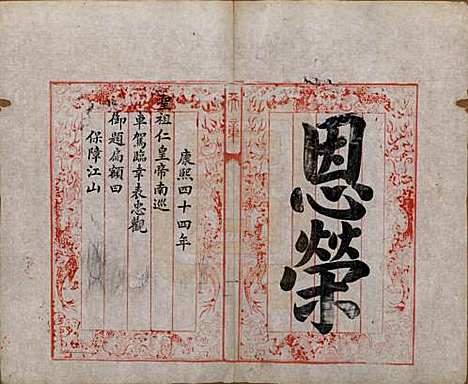 恩榮
康熙四十四年
聖祖仁皇帝南巡
車駕臨幸表忠觀
御題扁額曰
保障江山